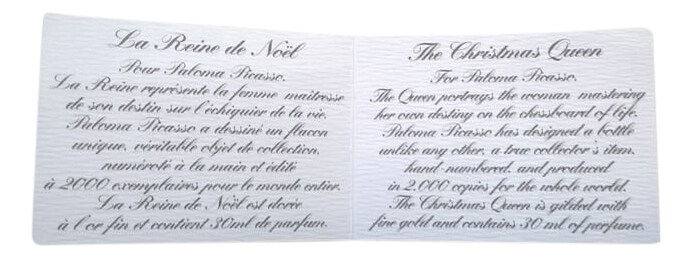 La Reine de Noël
Pour Paloma Picasso.
La Reine représente la femme maîtresse
de son destin sur l'échiquier de la vie.
Paloma Picasso a dessiné un flacon
unique, véritable objet de collection,
numéroté à la main et édité
à 2000 exemplaires pour le monde entier.
La Reine de Noël est dorée
à l'or fin et contient 30ml de parfum.
The Christmas Queen
For Paloma Picasso.
The Queen portrays the woman mastering
her own destiny on the chessboard of life.
Paloma Picasso has designed a bottle
unlike any other, a true collector's item,
hand-numbered, and produced
in 2,000 copies for the whole world.
The Christmas Queen is gilded with
fine gold and contains 30 ml of perfume.